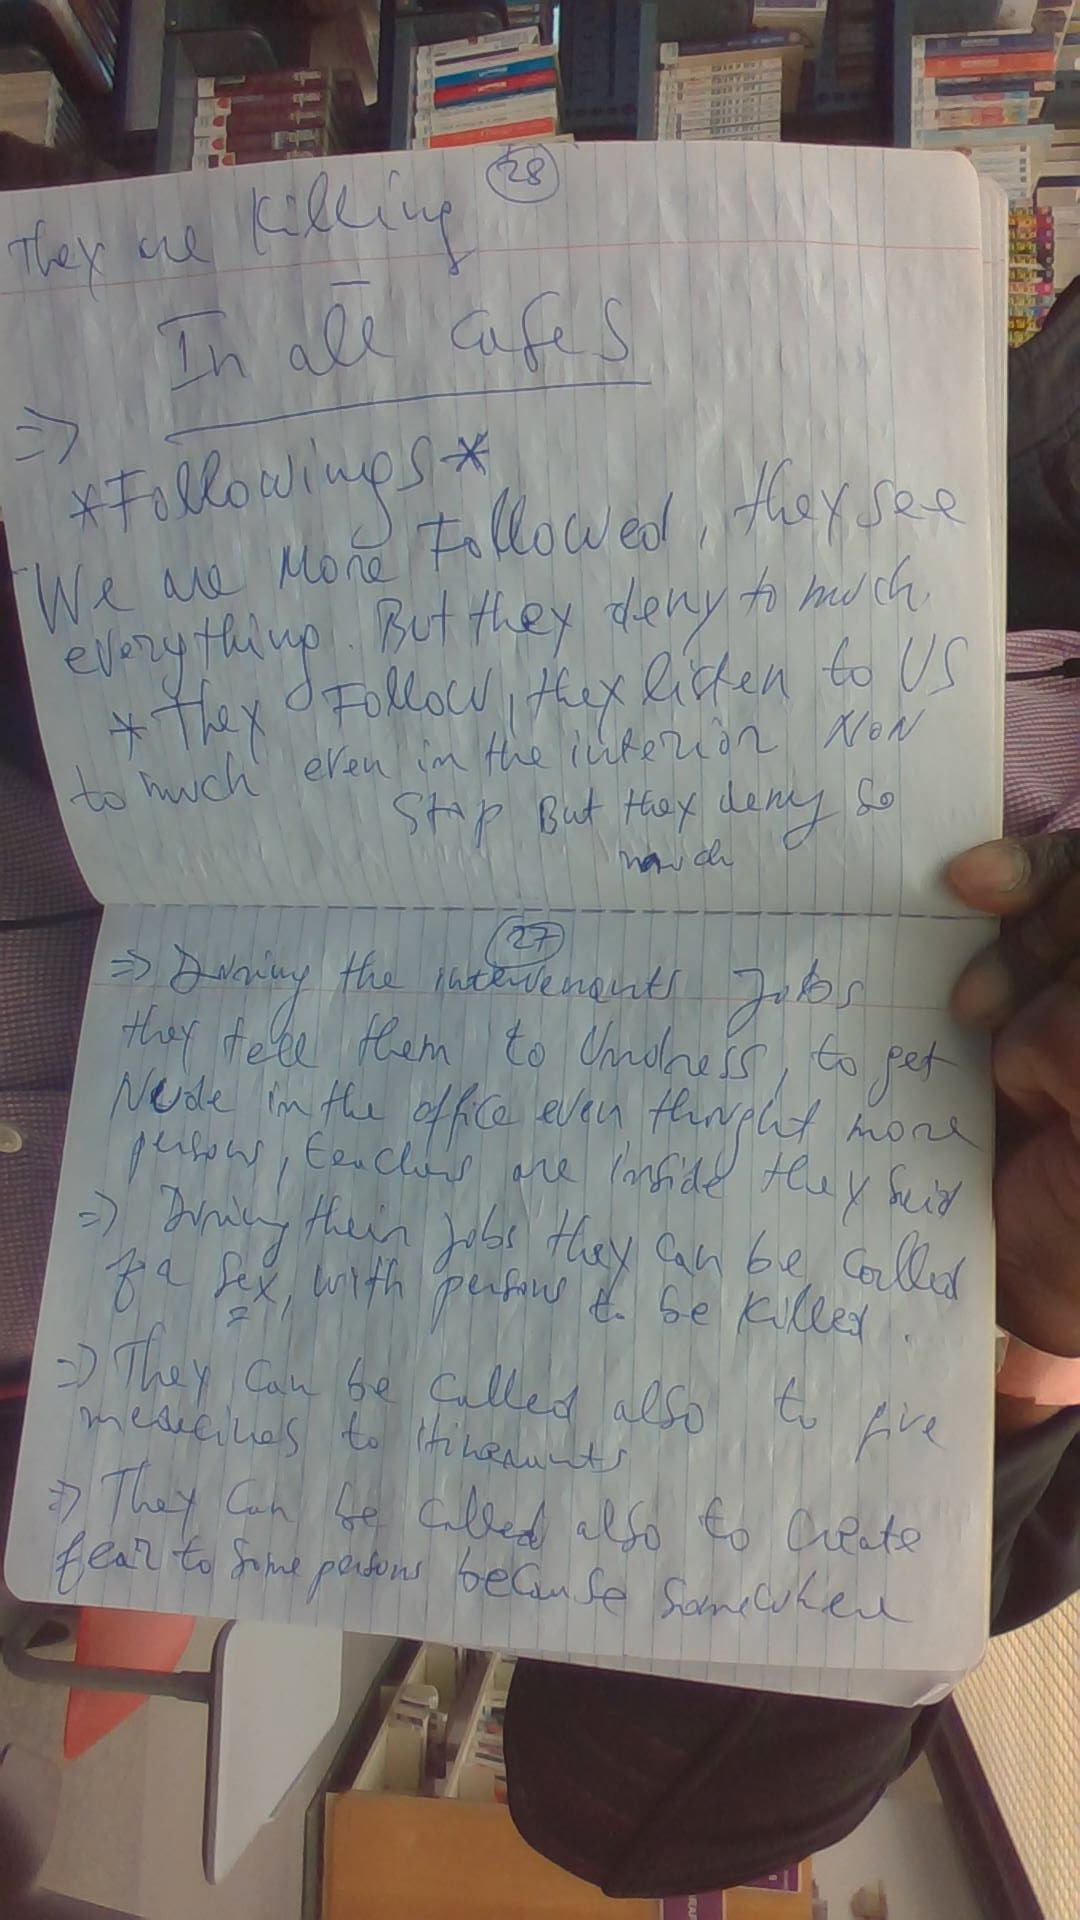 28
They are Killing
In all cases
=>
*Followings*
We are More Followed, they see
everything. But they deny to much
* They Follow, they listen to US
to much even in the interior NON
Stop But they deny so
much
27
=> During the intervenants Jobs
they tell them to Undress, to get
Nude in the office even thought more
persons, teachers are inside they said
=> During their Jobs they can be called
for a Sex, with persons to be killed.
=> They can be called also to give
medecines to itinerants
=> They can be called also to create
fear to some persons because somewhere